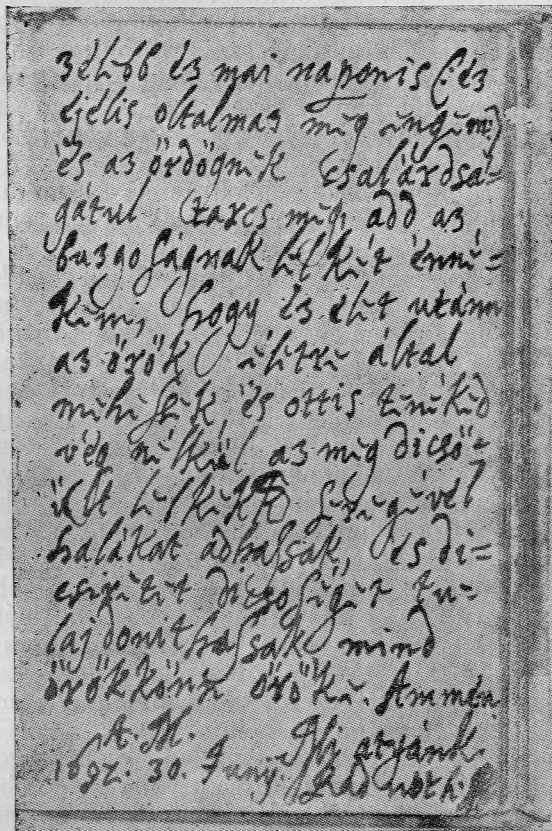 zélibb éz mai naponis (: éz
éjélis oltalmaz még ingim :)
és az ördögnék Csalárdsá=
gátul tarcs még, add az
buzgoságnak lélkét énné=
kém, hogy éz élet utánn
az örök élétré által
méhessék és ottis ténékéd
vég nélkül az még dicsö=
ült lélkékkel serégével
halákat adhassak, és di=
csirétét dicsoségét tu=
lajdonithassak mind
örökkönn örökké. Ammén
A. M. Mi atyánk.
1692. 30. Junij. Radnoth.